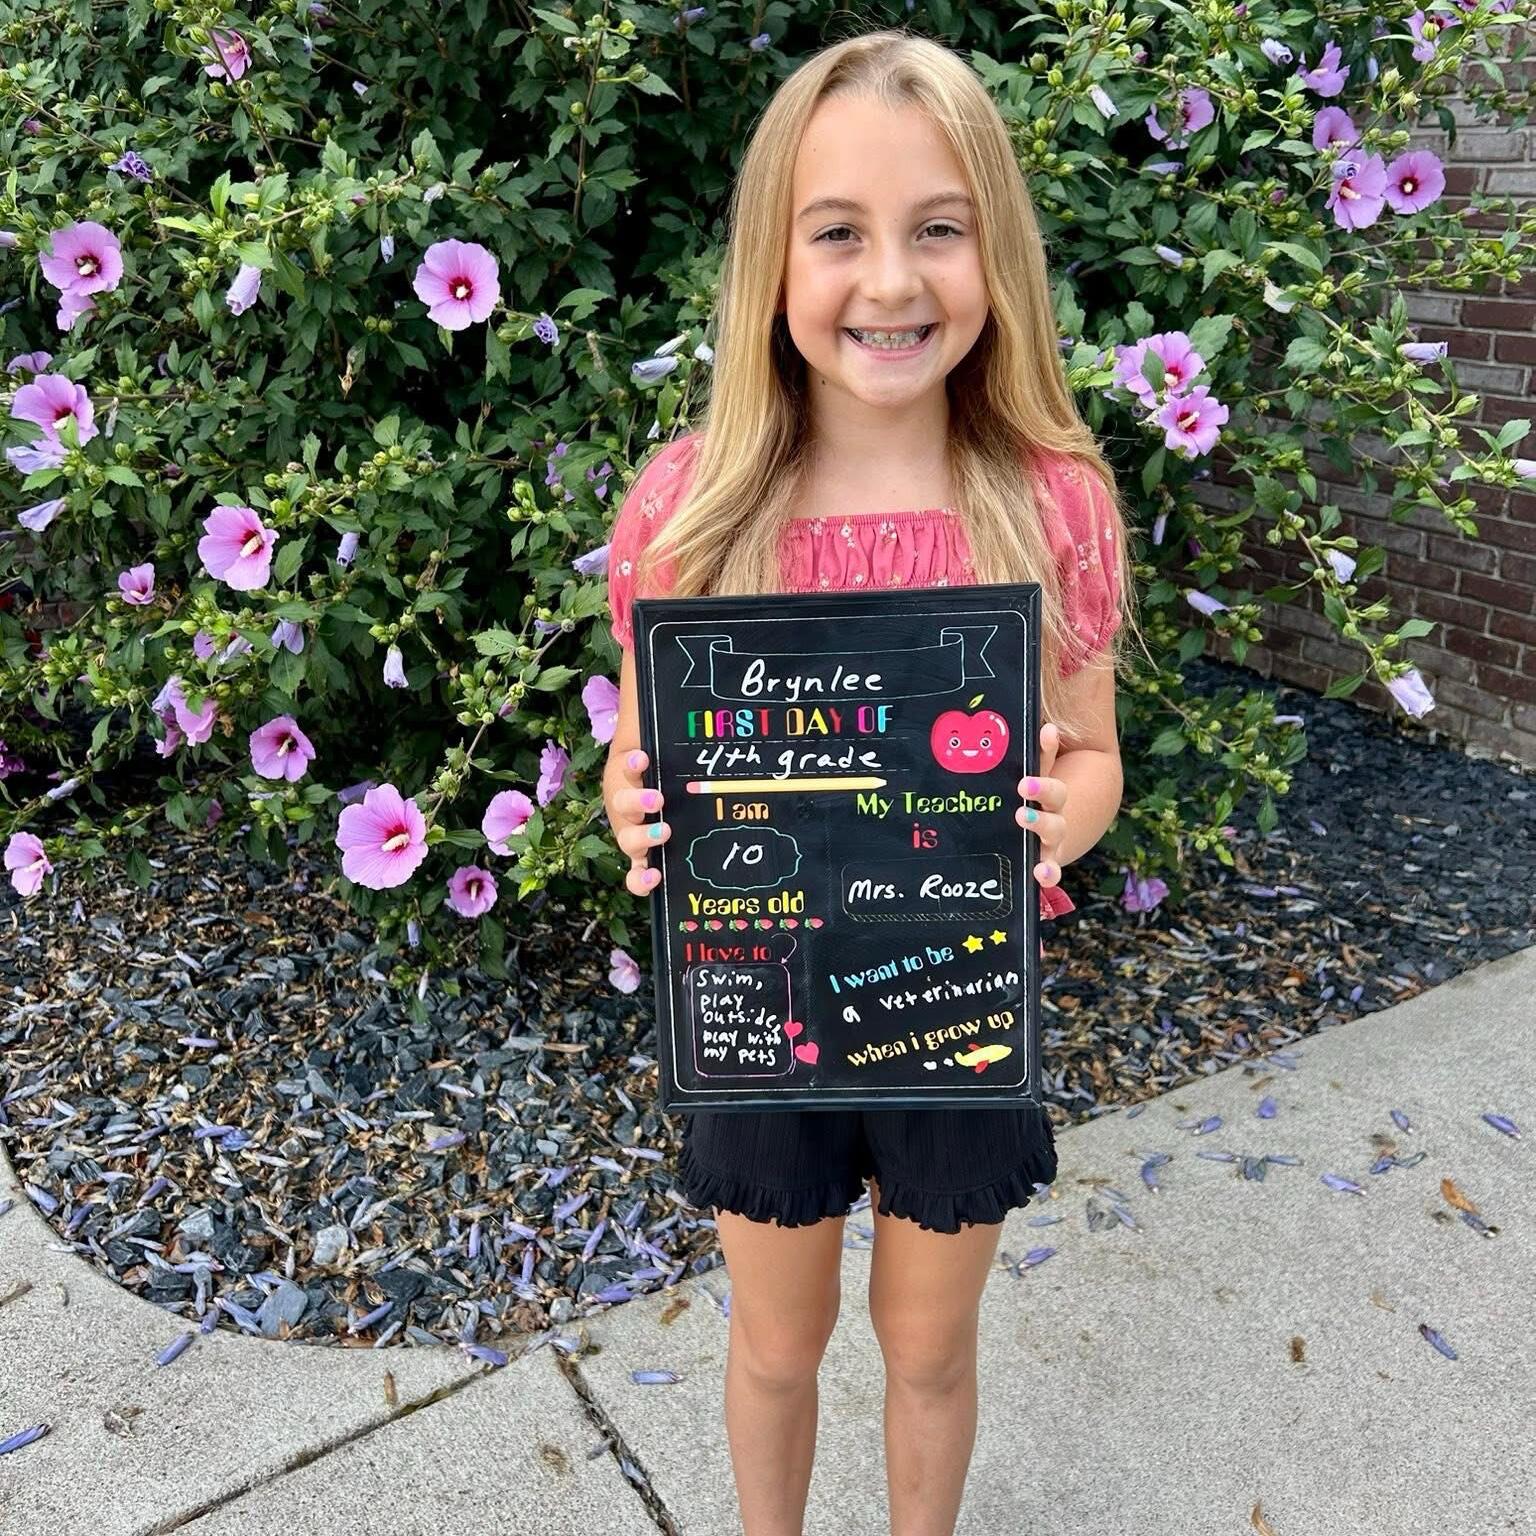 Brynlee
FIRST DAY OF
4th grade
I am
10
Years old
My Teacher
is
Mrs. Rooze
I love to
Swim,
play
outside,
play with
my pets
I want to be
a veterinarian
when i grow up